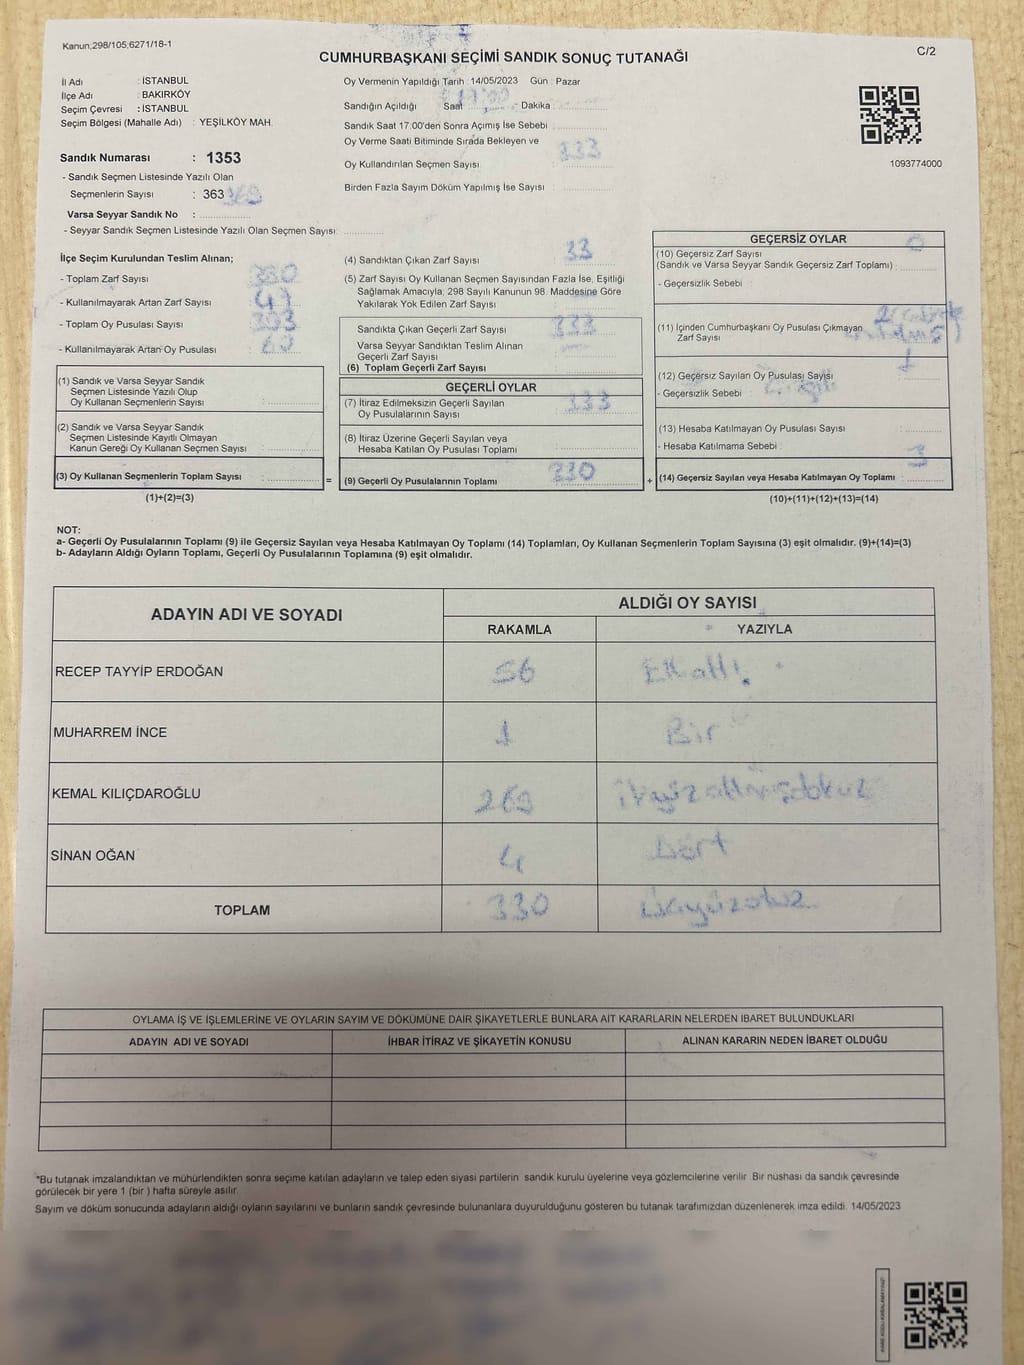 Kanun;298/105;6271/18-1
C/2
CUMHURBAŞKANI SEÇİMİ SANDIK SONUÇ TUTANAĞI
İl Adı : İSTANBUL
İlçe Adı : BAKIRKÖY
Seçim Çevresi : İSTANBUL
Seçim Bölgesi (Mahalle Adı) : YEŞİLKÖY MAH.
Oy Vermenin Yapıldığı Tarih :14/05/2023 Gün : Pazar
Sandığın Açıldığı Saat 17:00 Dakika
Sandık Saat 17.00'den Sonra Açımış İse Sebebi :
Oy Verme Saati Bitiminde Sırada Bekleyen ve
Oy Kullandırılan Seçmen Sayısı : 333
Birden Fazla Sayım Döküm Yapılmış İse Sayısı :
1093774000
Sandık Numarası : 1353
- Sandık Seçmen Listesinde Yazılı Olan
Seçmenlerin Sayısı : 363 363
Varsa Seyyar Sandık No :
- Seyyar Sandık Seçmen Listesinde Yazılı Olan Seçmen Sayısı:
İlçe Seçim Kurulundan Teslim Alınan;
- Toplam Zarf Sayısı 380
- Kullanılmayarak Artan Zarf Sayısı 47
- Toplam Oy Pusulası Sayısı 393
- Kullanılmayarak Artan Oy Pusulası 60
(1) Sandık ve Varsa Seyyar Sandık
Seçmen Listesinde Yazılı Olup
Oy Kullanan Seçmenlerin Sayısı :
(2) Sandık ve Varsa Seyyar Sandık
Seçmen Listesinde Kayıtlı Olmayan
Kanun Gereği Oy Kullanan Seçmen Sayısı :
(3) Oy Kullanan Seçmenlerin Toplam Sayısı :
(1)+(2)=(3)
=
(4) Sandıktan Çıkan Zarf Sayısı : 33
(5) Zarf Sayısı Oy Kullanan Seçmen Sayısından Fazla İse, Eşitliği
Sağlamak Amacıyla, 298 Sayılı Kanunun 98. Maddesine Göre
Yakılarak Yok Edilen Zarf Sayısı :
Sandıkta Çıkan Geçerli Zarf Sayısı : 333
Varsa Seyyar Sandıktan Teslim Alınan
Geçerli Zarf Sayısı :
(6) Toplam Geçerli Zarf Sayısı :
GEÇERLİ OYLAR
(7) İtiraz Edilmeksizin Geçerli Sayılan
Oy Pusulalarının Sayısı : 333
(8) İtiraz Üzerine Geçerli Sayılan veya
Hesaba Katılan Oy Pusulası Toplamı :
(9) Geçerli Oy Pusulalarının Toplamı : 330
+
GEÇERSİZ OYLAR
(10) Geçersiz Zarf Sayısı 0
(Sandık ve Varsa Seyyar Sandık Geçersiz Zarf Toplamı) :
- Geçersizlik Sebebi :
(11) İçinden Cumhurbaşkanı Oy Pusulası Çıkmayan
Zarf Sayısı
(12) Geçersiz Sayılan Oy Pusulası Sayısı : 1
- Geçersizlik Sebebi :
(13) Hesaba Katılmayan Oy Pusulası Sayısı :
- Hesaba Katılmama Sebebi :
(14) Geçersiz Sayılan veya Hesaba Katılmayan Oy Toplamı : 3
(10)+(11)+(12)+(13)=(14)
NOT:
a- Geçerli Oy Pusulalarının Toplamı (9) ile Geçersiz Sayılan veya Hesaba Katılmayan Oy Toplamı (14) Toplamları, Oy Kullanan Seçmenlerin Toplam Sayısına (3) eşit olmalıdır. (9)+(14)=(3)
b- Adayların Aldığı Oyların Toplamı, Geçerli Oy Pusulalarının Toplamına (9) eşit olmalıdır.
ADAYIN ADI VE SOYADI
ALDIĞI OY SAYISI
RAKAMLA YAZIYLA
RECEP TAYYİP ERDOĞAN 56 Elli altı
MUHARREM İNCE 1 Bir
KEMAL KILIÇDAROĞLU 269 ikiyüz altmışdokuz
SİNAN OĞAN 4 Dört
TOPLAM 330 üçyüzotuz
OYLAMA İŞ VE İŞLEMLERİNE VE OYLARIN SAYIM VE DÖKÜMÜNE DAİR ŞİKAYETLERLE BUNLARA AİT KARARLARIN NELERDEN İBARET BULUNDUKLARI
ADAYIN ADI VE SOYADI İHBAR İTİRAZ VE ŞİKAYETİN KONUSU ALINAN KARARIN NEDEN İBARET OLDUĞU
*Bu tutanak imzalandıktan ve mühürlendikten sonra seçime katılan adayların ve talep eden siyasi partilerin sandık kurulu üyelerine veya gözlemcilerine verilir. Bir nushası da sandık çevresinde
görülecek bir yere 1 (bir ) hafta süreyle asılır.
Sayım ve döküm sonucunda adayların aldığı oyların sayılarını ve bunların sandık çevresinde bulunanlara duyurulduğunu gösteren bu tutanak tarafımızdan düzenlenerek imza edildi. 14/05/2023